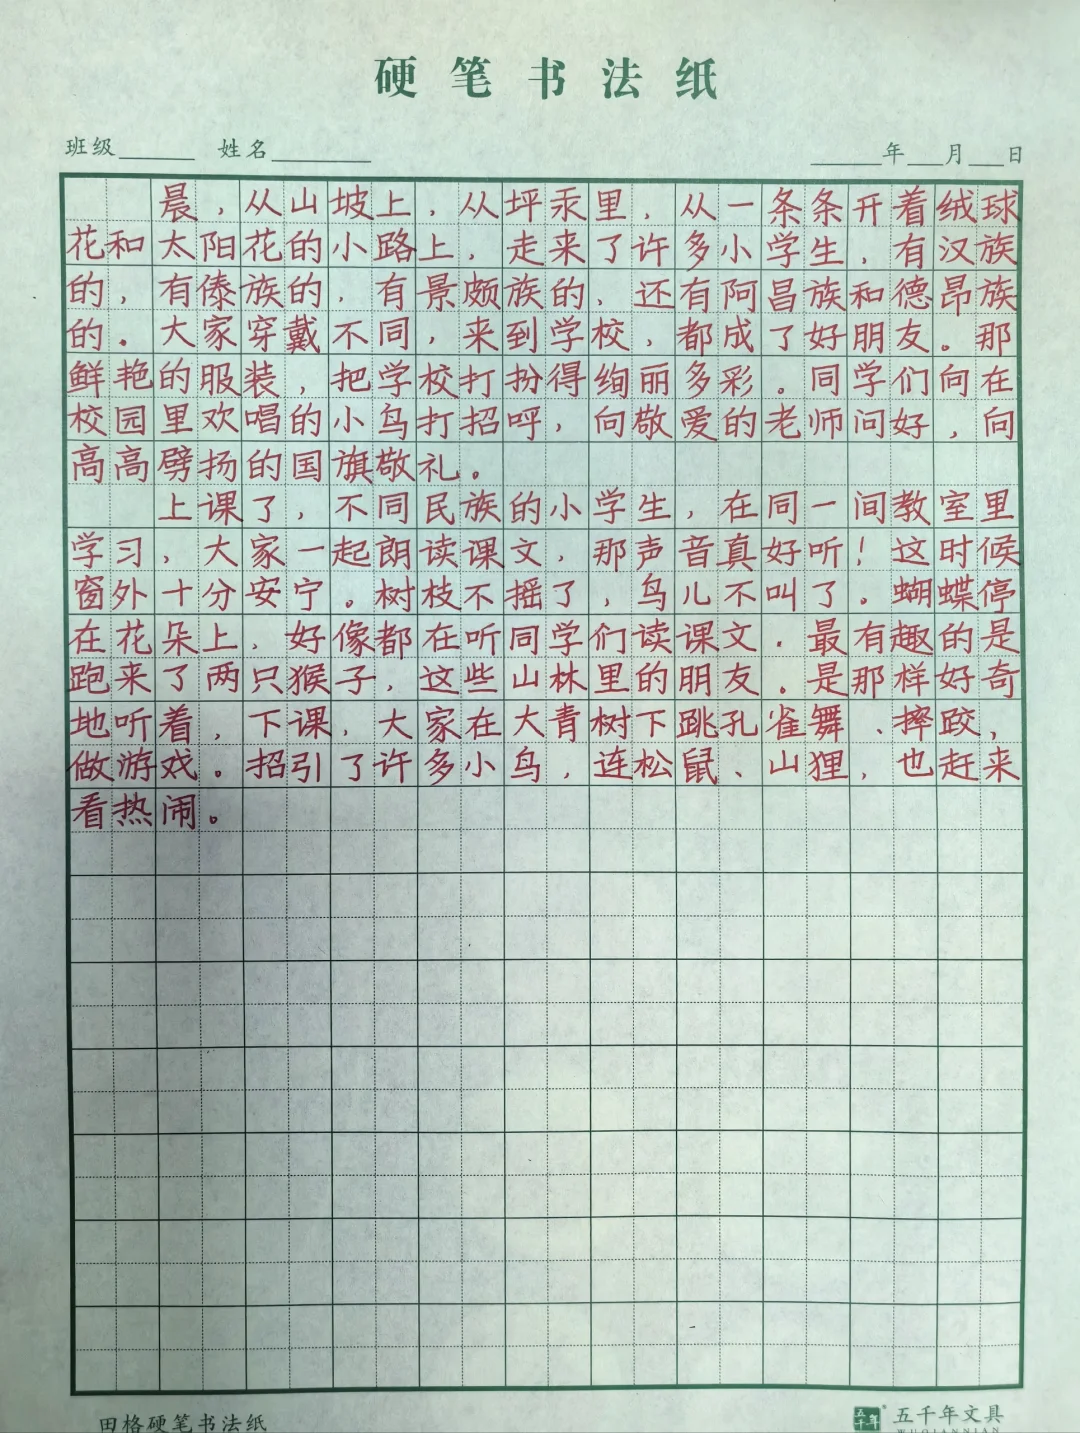 硬笔书法纸
班级 姓名 年 月 日
晨，从山坡上，从坪汞里，从一条条开着绒球
花和太阳花的小路上，走来了许多小学生，有汉族
的，有傣族的，有景颇族的、还有阿昌族和德昂族
的。大家穿戴不同，来到学校，都成了好朋友。那
鲜艳的服装，把学校打扮得绚丽多彩。同学们向在
校园里欢唱的小鸟打招呼，向敬爱的老师问好，向
高高劈扬的国旗敬礼。
上课了，不同民族的小学生，在同一间教室里
学习，大家一起朗读课文，那声音真好听！这时候
窗外十分安宁。树枝不摇了，鸟儿不叫了。蝴蝶停
在花朵上，好像都在听同学们读课文．最有趣的是
跑来了两只猴子，这些山林里的朋友．是那样好奇
地听着，下课，大家在大青树下跳孔雀舞、摔跤，
做游戏。招引了许多小鸟，连松鼠、山狸，也赶来
看热闹。
田格硬笔书法纸
五千年 五千年文具
WUQIANNIAN